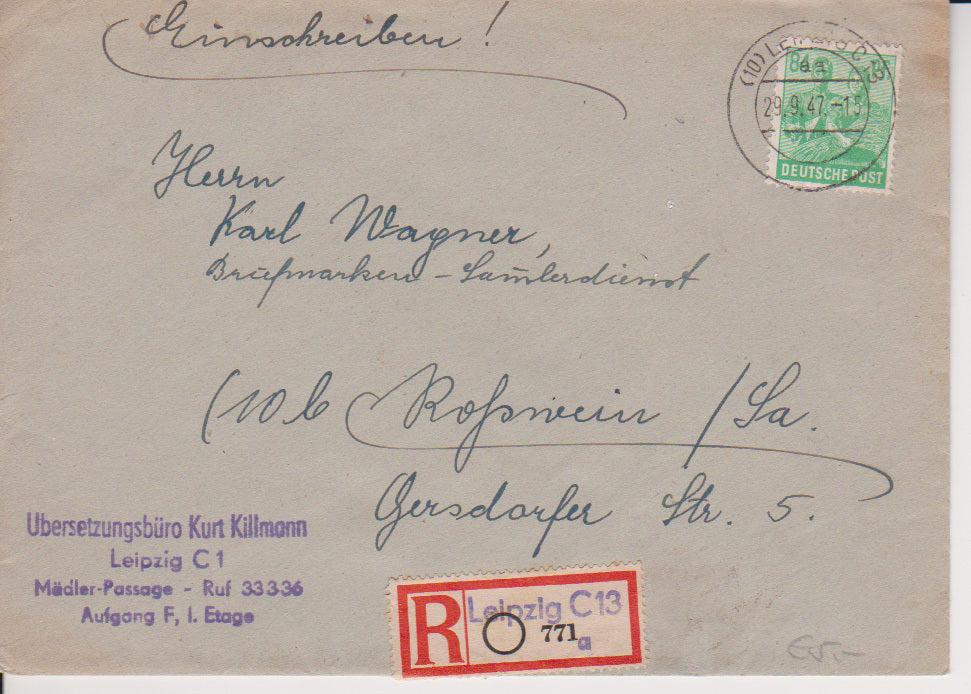 Einschreiben!
84
(10) LEIPZIG C
29.9.47.-15
DEUTSCHE POST
Herrn
Karl Wagner,
Briefmarken-Sam̄lerdienst
(10b Roßwein /Sa.
Gersdorfer Str. 5.
Übersetzungsbüro Kurt Killmann
Leipzig C 1
Mädler-Passage - Ruf 33336
Aufgang F, I. Etage
R Leipzig C 13
771
a